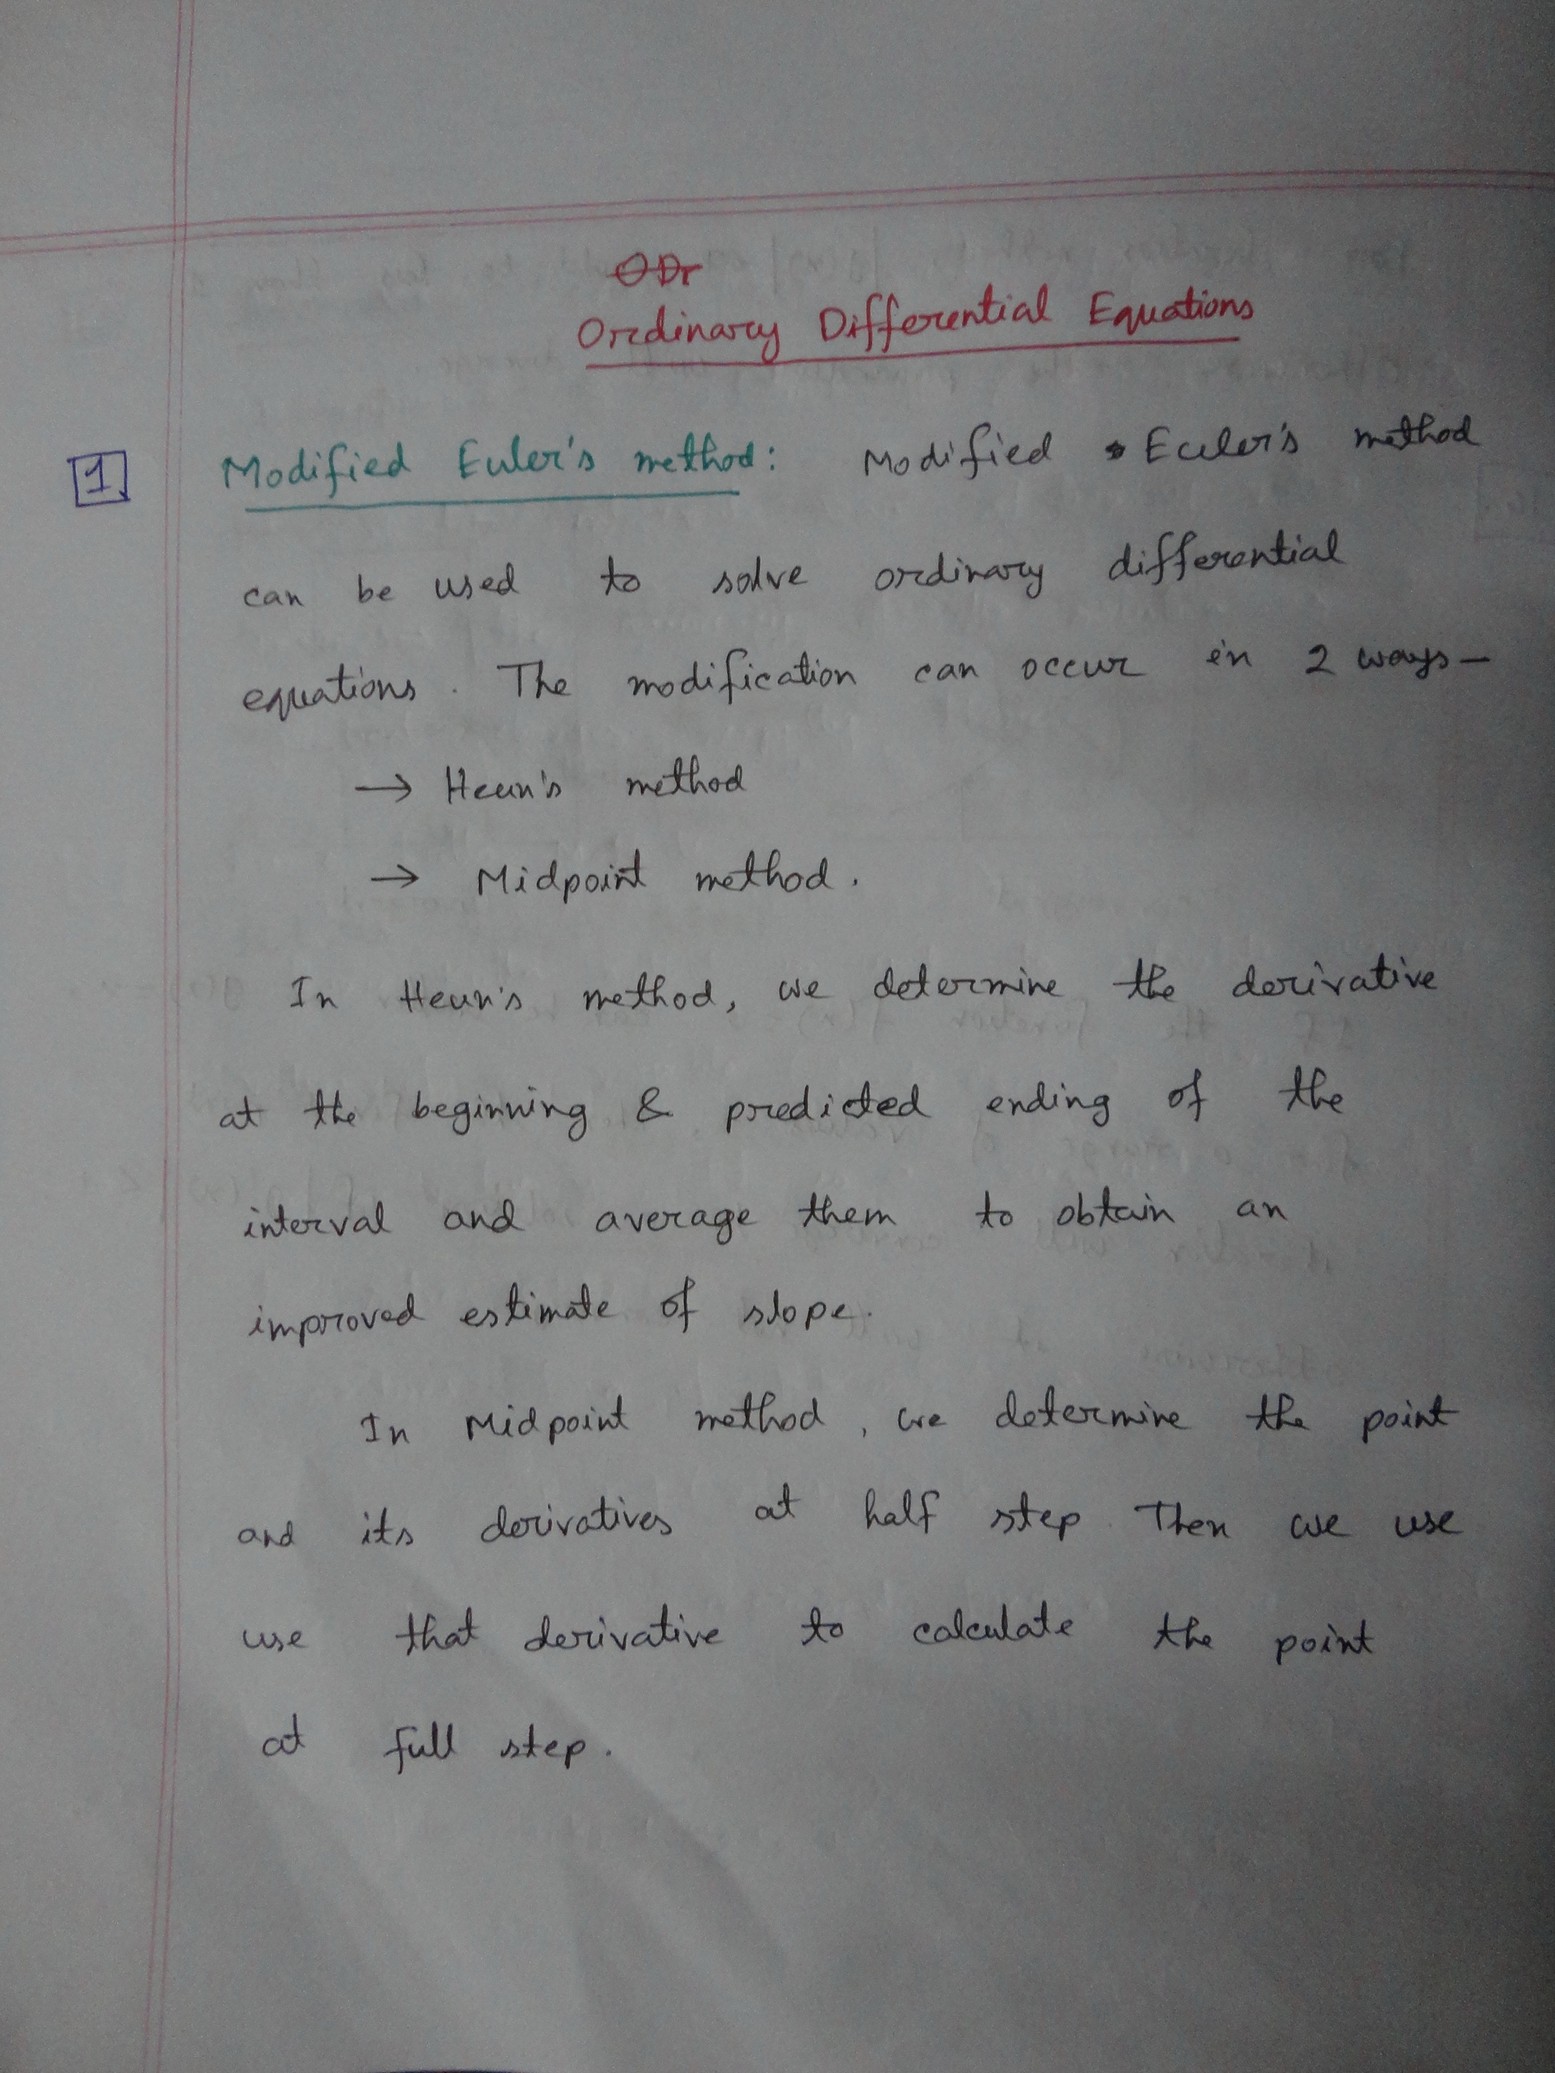 ODr
Ordinary Differential Equations
1. Modified Euler's method: Modified Euler's method
can be used to solve ordinary differential
equations. The modification can occur in 2 ways—
→ Heun's method
→ Midpoint method.
In Heun's method, we determine the derivative
at the beginning & predicted ending of the
interval and average them to obtain an
improved estimate of slope.
In Midpoint method, we determine the point
and its derivatives at half step. Then we use
use that derivative to calculate the point
at full step.